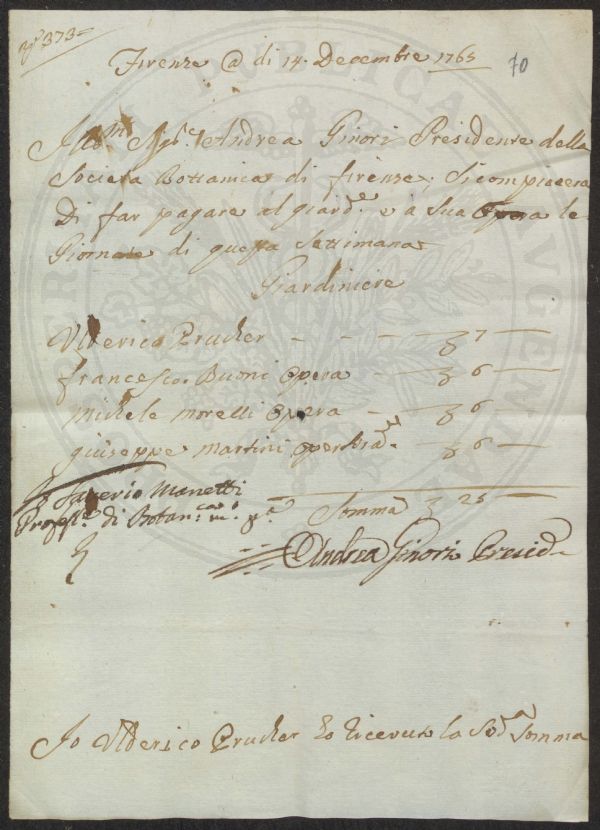 N° 373=
70
Firenze @ dì 14. Decembre 1765
Illmo Sigr. Andrea Ginori Presidente della
Società Bottanica di firenze, Si compiacerà
Di far pagare al giarde e a Sua Opera le
Giornate di questa Settimana
Giardiniere
Ulderico Prucher - - - - 7 —
francesco Buoni Opera - - 6 —
Michele Morelli Opera - - 6 —
giuseppe Martini Opera - 6 —
Saverio Manetti
Profse. di Botanca m. pa
Somma 25 —
Andrea Ginori Presid.
Io Ulderico Prucher ho ricevuto la Sd. Somma